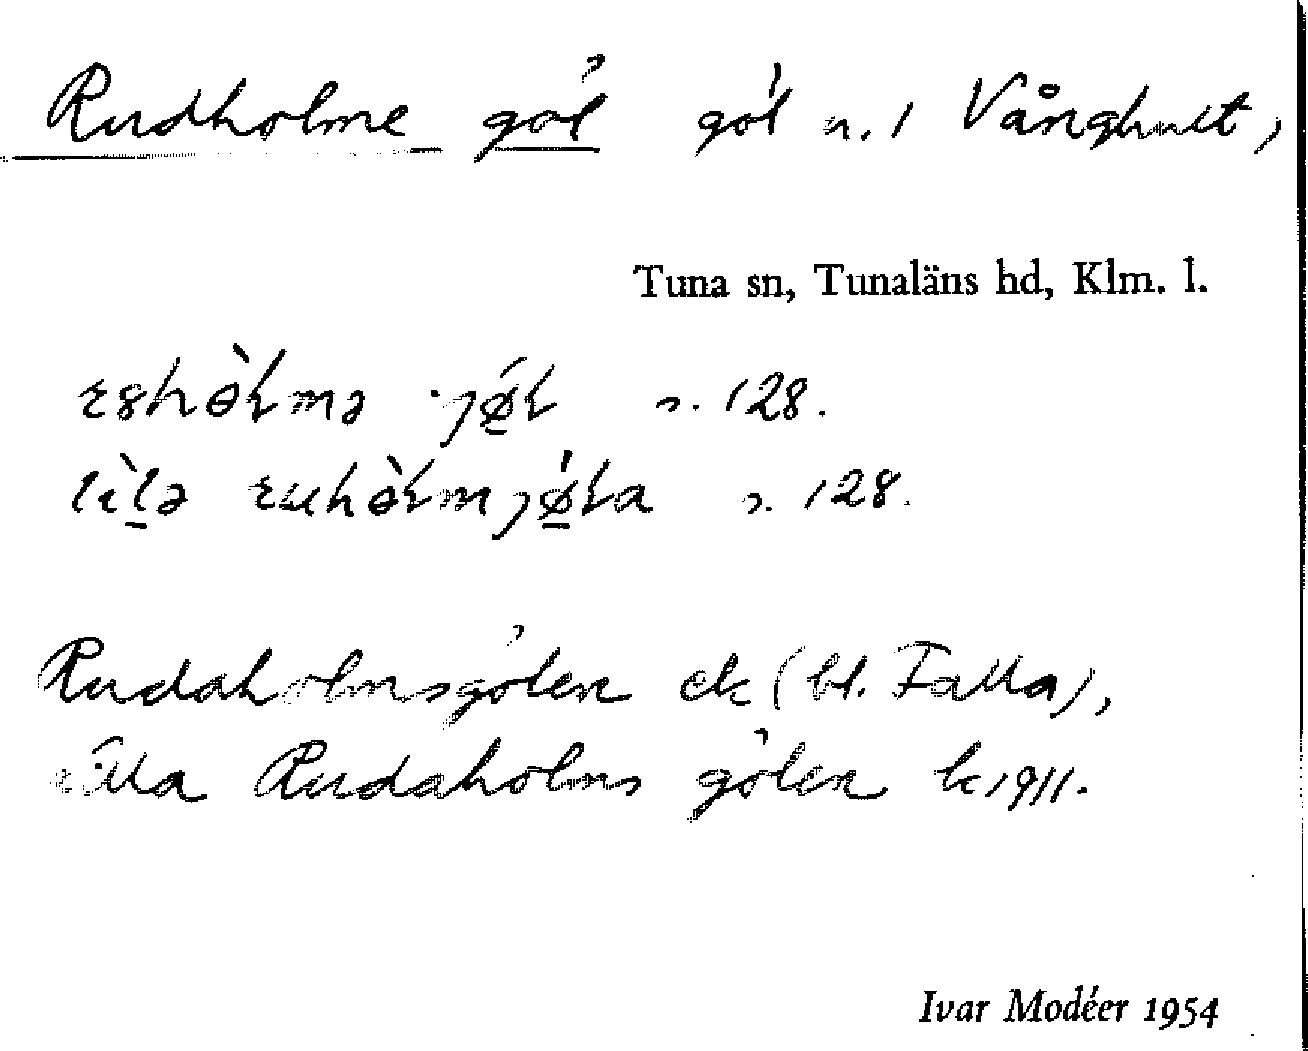 Rudholme göl göl n. 1 Vånghult,
Tuna sn, Tunaläns hd, Klm. l.
s. 128.
s. 128.
Rudaholmsgölen ek (bl. Falla),
Lilla Rudaholms gölen k 1911.
Ivar Modéer 1954